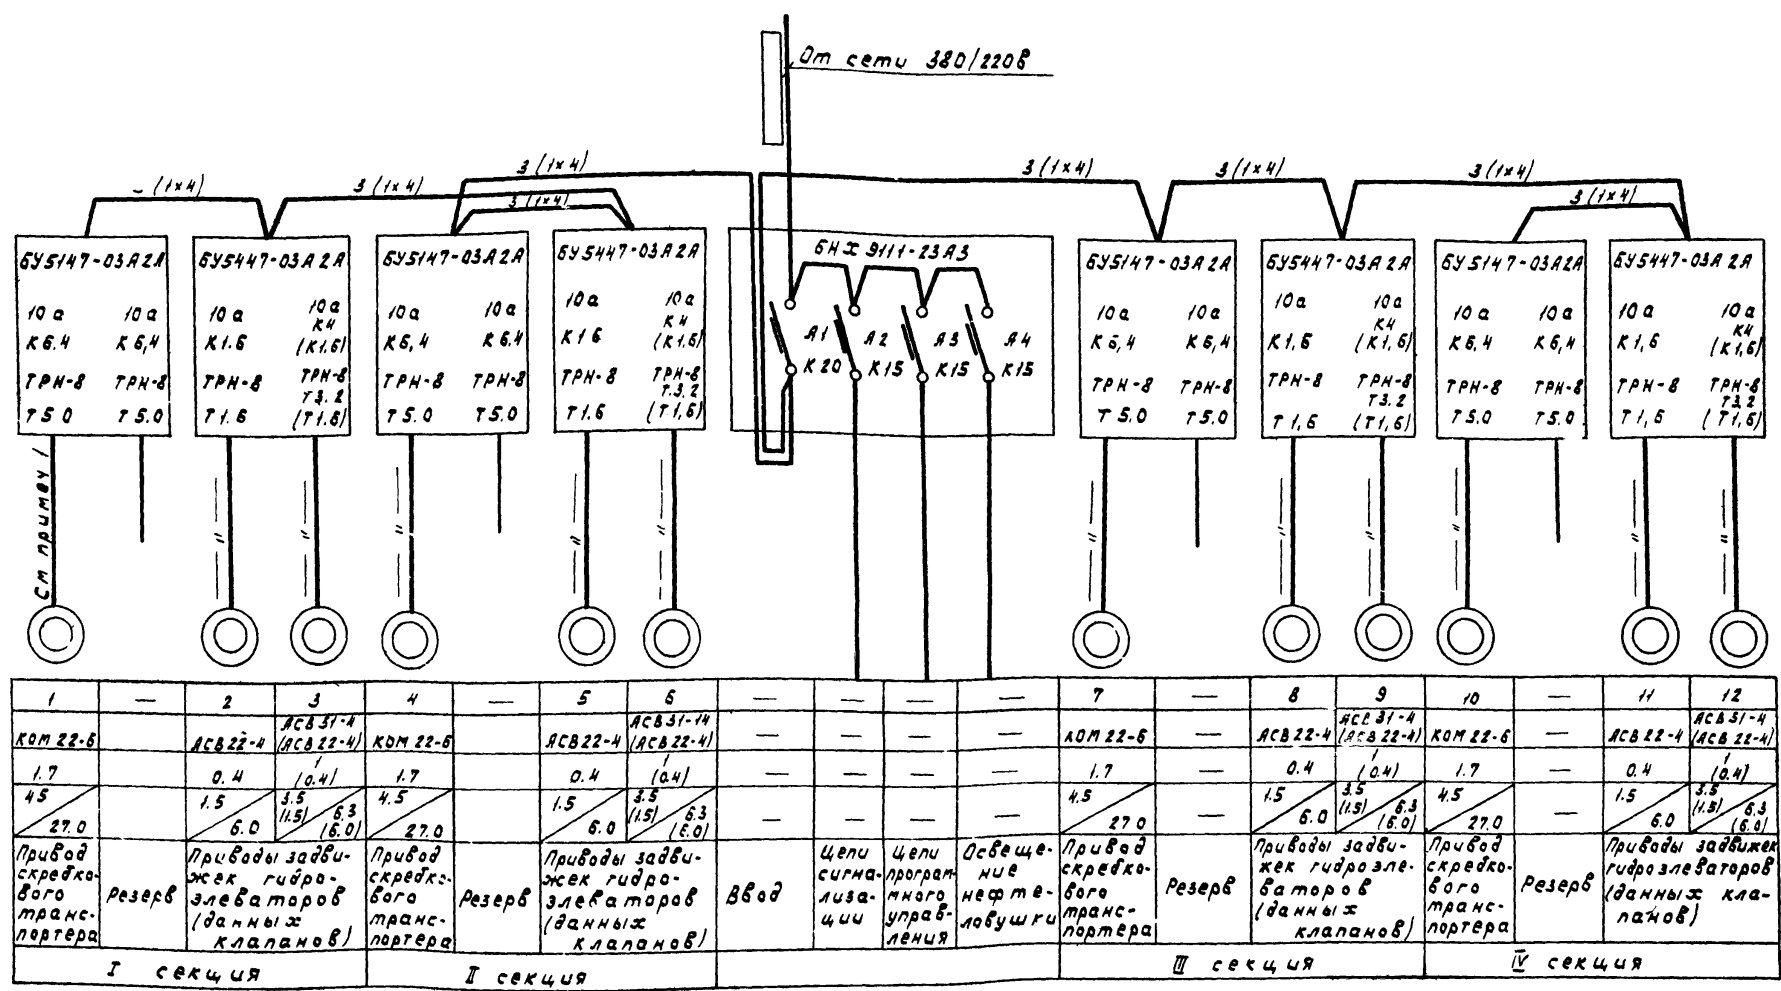 От сети 380/220в
– (1×4)
3 (1×4)
3 (1×4)
3 (1×4)
3 (1×4)
3 (1×4)
3 (1×4)
3 (1×4)
БУ5147-03А2А
10а 10а
К6.4 К6,4
ТРН-8 ТРН-8
Т5.0 Т5.0
БУ5447-03А2А
10а 10а
К4
К1.6 (К1,6)
ТРН-8 ТРН-8
Т3.2
Т1.6 (Т1.6)
БУ5147-03А2А
10а 10а
К6,4 К6.4
ТРН-8 ТРН-8
Т5.0 Т5.0
БУ5447-03А2А
10а 10а
К4
К16 (К1.6)
ТРН-8 ТРН-8
Т.3.2
Т1.6 (Т1,6)
БНХ 9111-23А3
А1 А2 А3 А4
К20 К15 К15 К15
БУ5147-03А2А
10а 10а
К6,4 К6,4
ТРН-8 ТРН-8
Т5.0 Т5.0
БУ5447-03А2А
10а 10а
К4
К1,6 (К1,6)
ТРН-8 ТРН-8
Т3.2
Т1,6 (Т1,6)
БУ5147-03А2А
10а 10а
К6,4 К6,4
ТРН-8 ТРН-8
Т5.0 Т5.0
БУ5447-03А2А
10а 10а
К4
К1,6 (К1,6)
ТРН-8 ТРН-8
Т3.2
Т1,6 (Т1,6)
См примеч 1
— " — — " — — " — — " — — " — — " — — " — — " — — " — — " — — " —
1 — 2 3 4 — 5 6 — — — — 7 — 8 9 10 — 11 12
КОМ22-6 АСВ22-4 АСВ31-4 (АСВ22-4) КОМ22-6 АСВ22-4 АСВ31-14 (АСВ22-4) — — — — КОМ22-6 — АСВ22-4 АСВ31-4 (АСВ22-4) КОМ22-6 — АСВ22-4 АСВ31-4 (АСВ22-4)
1.7 0.4 1 (0.4) 1.7 0.4 1 (0.4) — — — — 1.7 — 0.4 1 (0.4) 1.7 — 0.4 1 (0.4)
45 1.5 3.5 (1.5) 4.5 1.5 3.5 (1.5) — — — — 4.5 — 1.5 3.5 (1.5) 4.5 — 1.5 3.5 (1.5)
27.0 6.0 6.3 (6.0) 27.0 6.0 6.3 (6.0) 270 6.0 6.3 (6.0) 27.0 6.0 6.3 (6.0)
Привод
скребко-
вого
транс-
портера
Резерв
Приводы задви-
жек гидро-
элеваторов
(данных
клапанов)
Привод
скребко-
вого
транс-
портера
Резерв
Приводы задви-
жек гидро-
элеваторов
(данных
клапанов)
Ввод
Цепи
сигна-
лиза-
ции
Цепи
програм-
много
управ-
ления
Освеще-
ние
нефте-
ловушки
Привод
скребко-
вого
транс-
портера
Резерв
Приводы задви-
жек гидроэле-
ваторов
(данных
клапанов)
Привод
скребко-
вого
транс-
портера
Резерв
Приводы задвижек
гидроэлеваторов
(данных кла-
панов)
I секция
II секция
III секция
IV секция